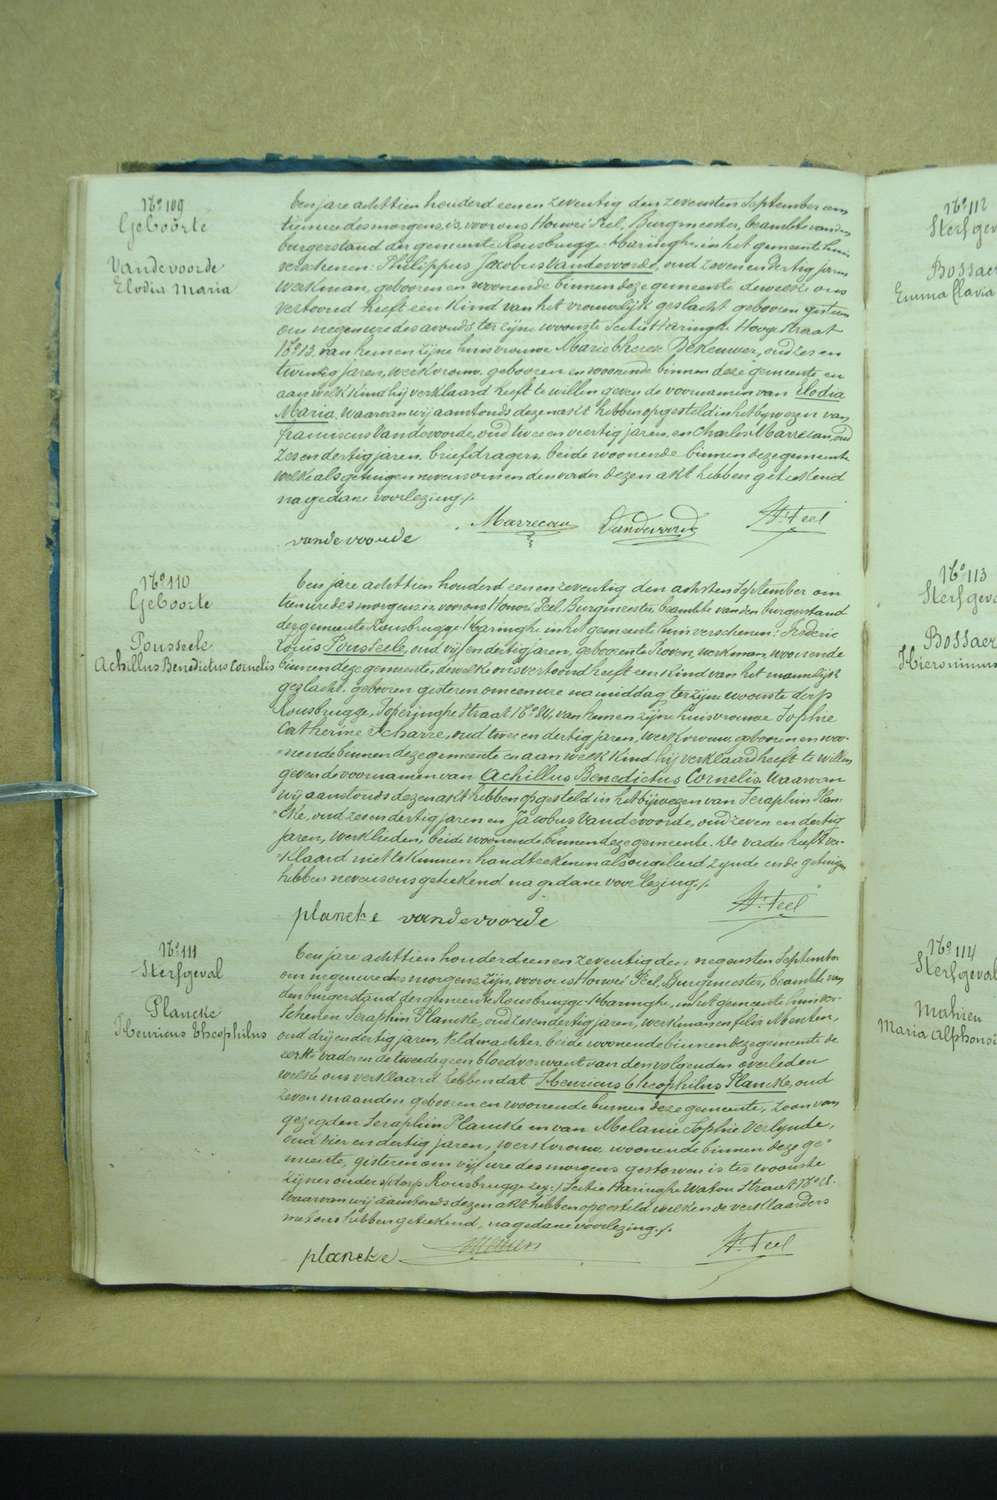 No 109
Geboorte
Vandevoorde
Elodia Maria
Ten jare achttien honderd een en zeventig den zevensten September om
tien ure des morgens is voor ons Honoré Peel, Burgmeester, beambte van den
burgerstand der gemeente Rousbrugge-Haringhe, in het gemeente huis
verschenen: Philippus Jacobus Vandevoorde, oud zeven en dertig jaren
werkman, geboren en woonende binnen deze gemeente dewelke ons
vertoond heeft een kind van het vrouwelijk geslacht geboren gisteren
om negen ure des avonds, ter zijne woonste Sectie Haringhe Hooge Straat
No 13, van hem en zijne huisvrouwe Marie Therese Dekeuwer, oud zes en
twintig jaren, werkvrouw, geboren en woonende binnen deze gemeente en
aan welk kind hij verklaard heeft te willen geven de voornamen van Elodia
Maria, waarvan wij aanstonds dezen akt hebben opgesteld in het bijwezen van
franciscus Vandevoorde, oud twee en veertig jaren, en Charles Marrecau, oud
zes en dertig jaren, briefdragers, beide woonende binnen deze gemeente
welke als getuigen nevens ons en den vader dezen akt hebben geteekend
na gedane voorlezing./.
vandevoorde Marrecau Vandevoorde H. Peel
No 110
Geboorte
Pousseele
Achillus Benedictus Cornelis
Ten jare achttien honderd een en zeventig den achsten September om
tien ure des morgens is voor ons Honoré Peel, Burgmeester, beambte van den burgerstand
der gemeente Rousbrugge-Haringhe in het gemeente huis verschenen: Frederic
Louis Pousseele, oud vijf en dertig jaren, geboren te Proven, werkman, woonende
binnen deze gemeente, dewelke ons vertoond heeft een kind van het mannelijk
geslacht, geboren gisteren om een ure na middag, ter zijne woonste dorp
Rousbrugge, Poperinghe Straat No 84, van hem en zijne huisvrouwe Sophie
Catherine Scharre, oud twee en dertig jaren, werkvrouw, geboren en woo-
nende binnen deze gemeente en aan welk kind hij verklaard heeft te willen
geven de voornamen van Achillus Benedictus Cornelis, waarvan
wij aanstonds dezen akt hebben opgesteld in het bijwezen van Seraphin Plan-
cke, oud zes en dertig jaren en Jacobus Vandevoorde, oud zeven en dertig
jaren, werklieden, beide woonende binnen deze gemeente. De vader heeft ver-
klaard niet te kunnen handteekenen als ongeleerd zijnde en de getuigen
hebben nevens ons geteekend na gedane voorlezing./.
plancke vandevoorde H. Peel
No 111
Sterfgeval
Plancke
Henricus Theophilus
Ten jare achttien honderd een en zeventig den negensten September
om negen ure des morgens zijn voor ons Honoré Peel, Burgmeester, beambte van
den burgerstand der gemeente Rousbrugge-Haringhe, in het gemeente huis ver-
schenen Seraphin Plancke, oud zes en dertig jaren, werkman en felix Menten,
oud drij en dertig jaren, Veldwachter, beide woonende binnen deze gemeente de
eerste vader en de tweede geen bloedverwant van den volgenden overleden
welke ons verklaard hebben dat Henricus Theophilus Plancke, oud
zeven maanden geboren en woonende binnen deze gemeente, zoon van
gezegden Seraphin Plancke en van Melanie Sophie Verlynde,
oud vier en dertig jaren, werkvrouw, woonende binnen deze ge-
meente, gisteren om vijf ure des morgens gestorven is ter woonste
zijner ouders, dorp Rousbrugge zeg: Sectie Haringhe Watou Straat No 18.
Waarvan wij aanstonds dezen akt hebben opgesteld welken de verklaarders
met ons hebben geteekend, na gedane voorlezing./.
plancke Menten H. Peel
No 112
Sterfgev
Bossaer
Emma flavia
No 113
Sterfgeva
Bossaer
Hieronimus
No 114
Sterfgeval
Mahieu
Maria Alphonsi